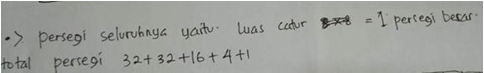 •> persegi seluruhnya yaitu. luas catur = 1 persegi besar.
total persegi 32+32+16+4+1